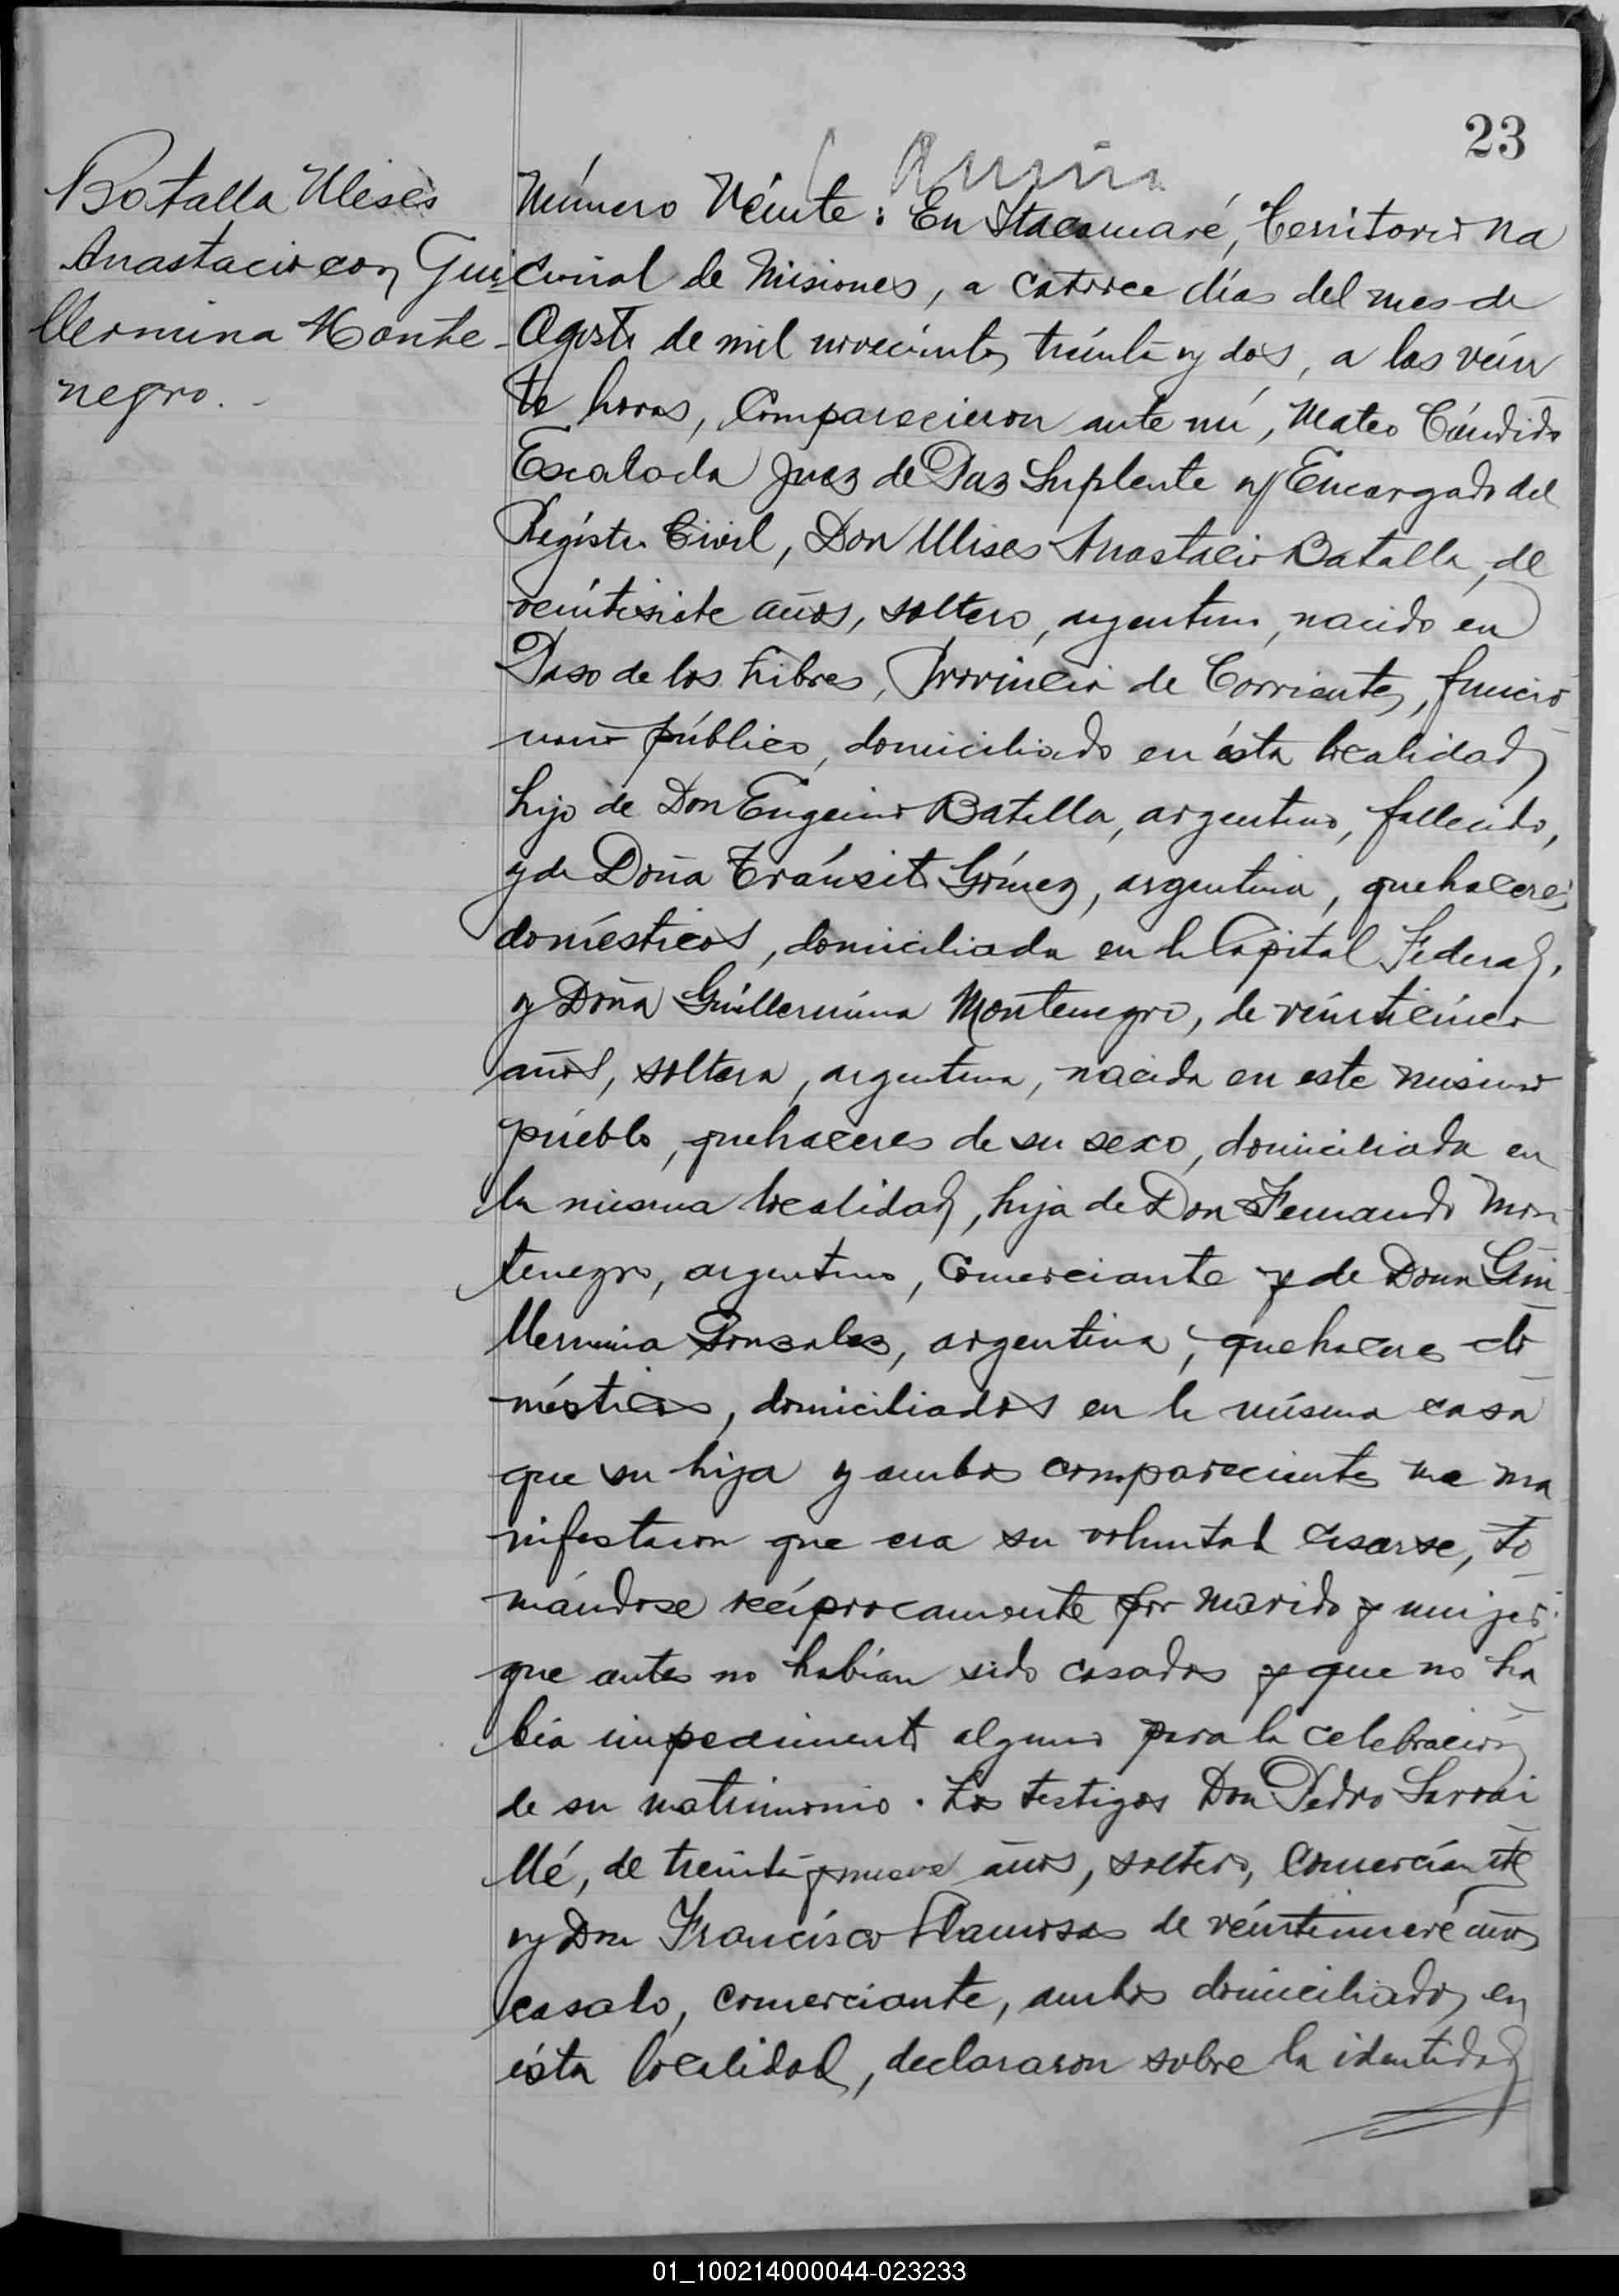 23
Batalla Ulises
Anastacio con Gui
llermina Monte-
negro.-
Número Véinte: En Itacaruaré, Territorio Na
cional de Misiones, a catorce días del mes de
Agosto de mil novecientos tréinta y dos, a las véin
te horas, Comparecieron ante mí, Mateo Cándido
Escalada Juez de Paz Suplente y Encargado del
Registro Civil, Don Ulises Anastacio Batalla, de
veintisiete años, soltero, argentino, nacido en
Paso de los Libres, Provincia de Corrientes, funcio
nario público, domiciliado en ésta localidad,
hijo de Don Eugenio Batalla, argentino, fallecido,
y de Doña Tránsito Gómez, argentina, quehaceres
domésticos, domiciliada en la Capital Federal,
y Doña Guillermina Montenegro, de véinticinco
años, soltera, argentina, nacida en este mismo
pueblo, quehaceres de su sexo, domiciliada en
la misma localidad, hija de Don Fernando Mon
tenegro, argentino, Comerciante y de Doña Gui
llermina Gonzalez, argentina, quehaceres do
mésticos, domiciliados en la misma casa
que su hija y ambos comparecientes me ma
nifestaron que era su voluntad casarse, to
mándose recíprocamente por marido y mujer;
que antes no habían sido casados y que no ha
bía impedimento alguno para la celebración
de su matrimonio. Los testigos Don Pedro Sarrai
llé, de treinta y nueve años, soltero, Comerciante
y Don Francisco Llamosas de véintinueve años
casado, comerciante, ambos domiciliados en
ésta localidad, declararon sobre la identidad
01_100214000044-023233